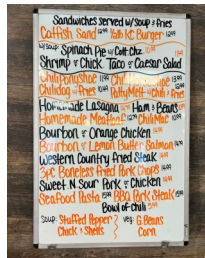 Sandwiches served w/ Soup & Fries
Catfish Sand 12.99 ½lb KC Burger 12.99
w/ Soup Spinach Pie w/ Cott Chz
Shrimp or Chick Taco or Caesar Salad
Chiliponyshoe 11.99 Chili
Chilidog w/ Fries 10.99 PattyMelt w/ Chili & Fries
Homemade Lasagna Ham & Beans
Homemade Meatloaf ChiliMac 10.99
Bourbon or Orange Chicken 14.99
Bourbon or Lemon Butter Salmon 14.99
Western Country Fried Steak 14.99
3pc Boneless Fried Pork Chops 14.99
Sweet N Sour Pork or Chicken 14.99
Seafood Pasta 15.99 BBQ Pork Steak
Bowl of Chili
Soup: Stuffed Pepper Veg: G. Beans
Chick & Shells Corn